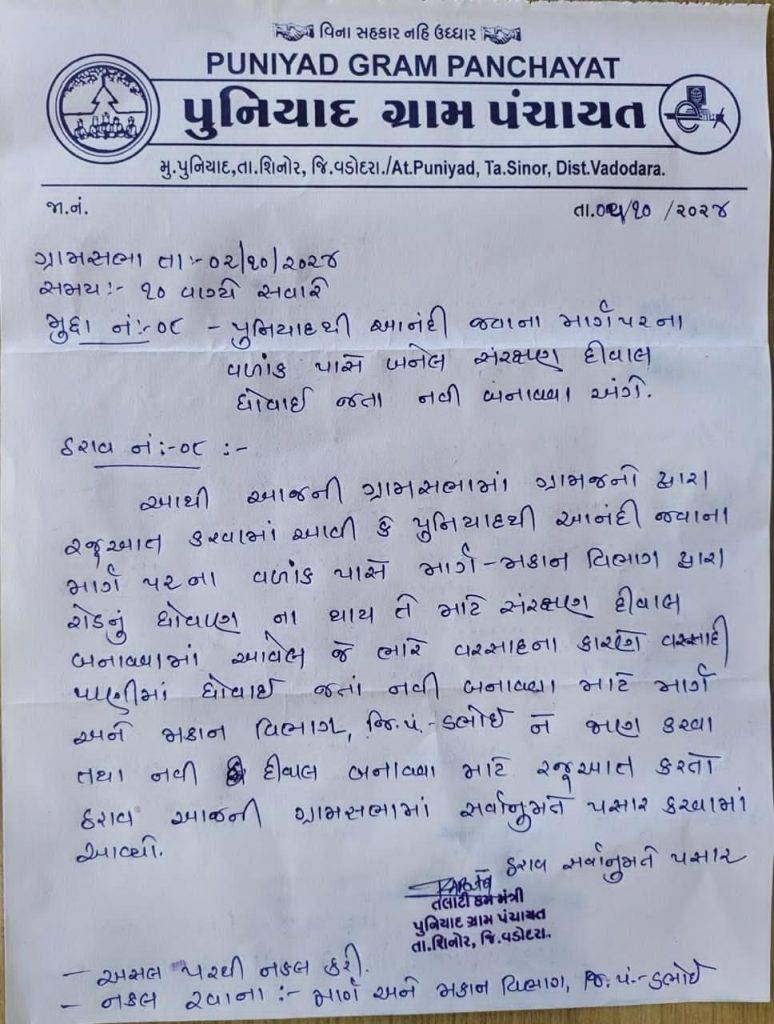 વિના સહકાર નહિ ઉધ્ધાર
PUNIYAD GRAM PANCHAYAT
પુનિયાદ ગ્રામ પંચાયત
મુ.પુનિયાદ,તા.શિનોર, જિ.વડોદરા./At.Puniyad, Ta.Sinor, Dist.Vadodara.
જા.નં.
તા. /૧૦ /૨૦૨૪
ગ્રામસભા તા:-૦૨/૧૦/૨૦૨૪
સમય:- ૧૦ વાગ્યે સવારે
મુદ્દા નં:-૦૮ - પુનિયાદથી આનંદી જવાના માર્ગ પરના
વળાંક પાસે બનેલ સંરક્ષણ દીવાલ
ધોવાઈ જતા નવી બનાવવા અંગે.
ઠરાવ નં:-૦૮ :-
આથી આજની ગ્રામસભામાં ગ્રામજનો દ્વારા
રજૂઆત કરવામાં આવી કે પુનિયાદથી આનંદી જવાના
માર્ગ પરના વળાંક પાસે માર્ગ-મકાન વિભાગ દ્વારા
રોડનું ધોવાણ ના થાય તે માટે સંરક્ષણ દીવાલ
બનાવવામાં આવેલ જે ભારે વરસાદના કારણે વરસાદી
પાણીમાં ધોવાઈ જતાં નવી બનાવવા માટે માર્ગ
અને મકાન વિભાગ, જિ.પં.-ડભોઈ ને જાણ કરવા
તથા નવી દીવાલ બનાવવા માટે રજૂઆત કરતો
ઠરાવ આજની ગ્રામસભામાં સર્વાનુમતે પસાર કરવામાં
આવ્યો.
ઠરાવ સર્વાનુમતે પસાર
તલાટી કમ મંત્રી
પુનિયાદ ગ્રામ પંચાયત
તા.શિનોર, જિ.વડોદરા.
- અસલ પરથી નકલ કરી.
- નકલ રવાના :- માર્ગ અને મકાન વિભાગ, જિ.પં.-ડભોઈ